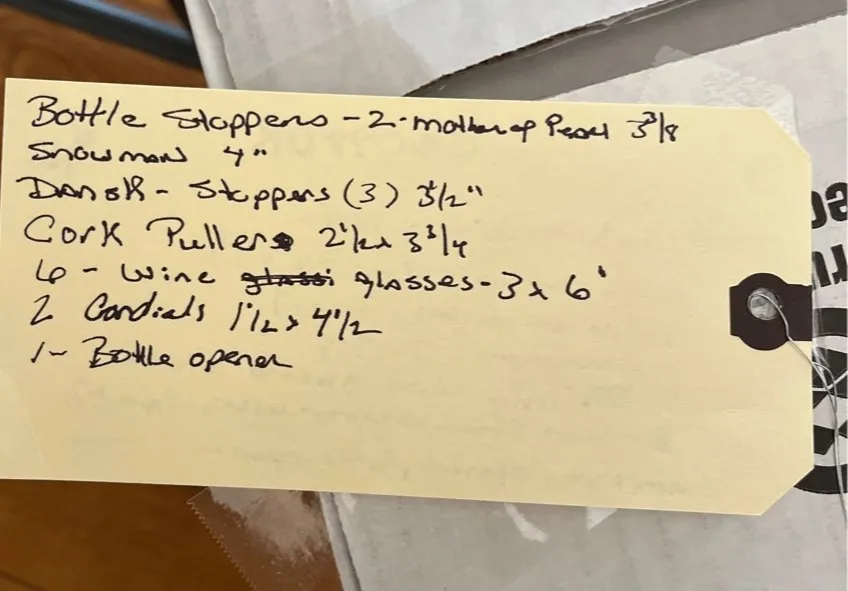 Bottle Stoppers - 2 - mother of Pearl 3 3/8
Snowman 4"
Dansk - Stoppers (3) 3 1/2"
Cork Puller 2 1/2 x 3 3/4
6 - wine glasses - 3 x 6'
2 Cordials 1 1/2 x 4 1/2
1 - Bottle opener